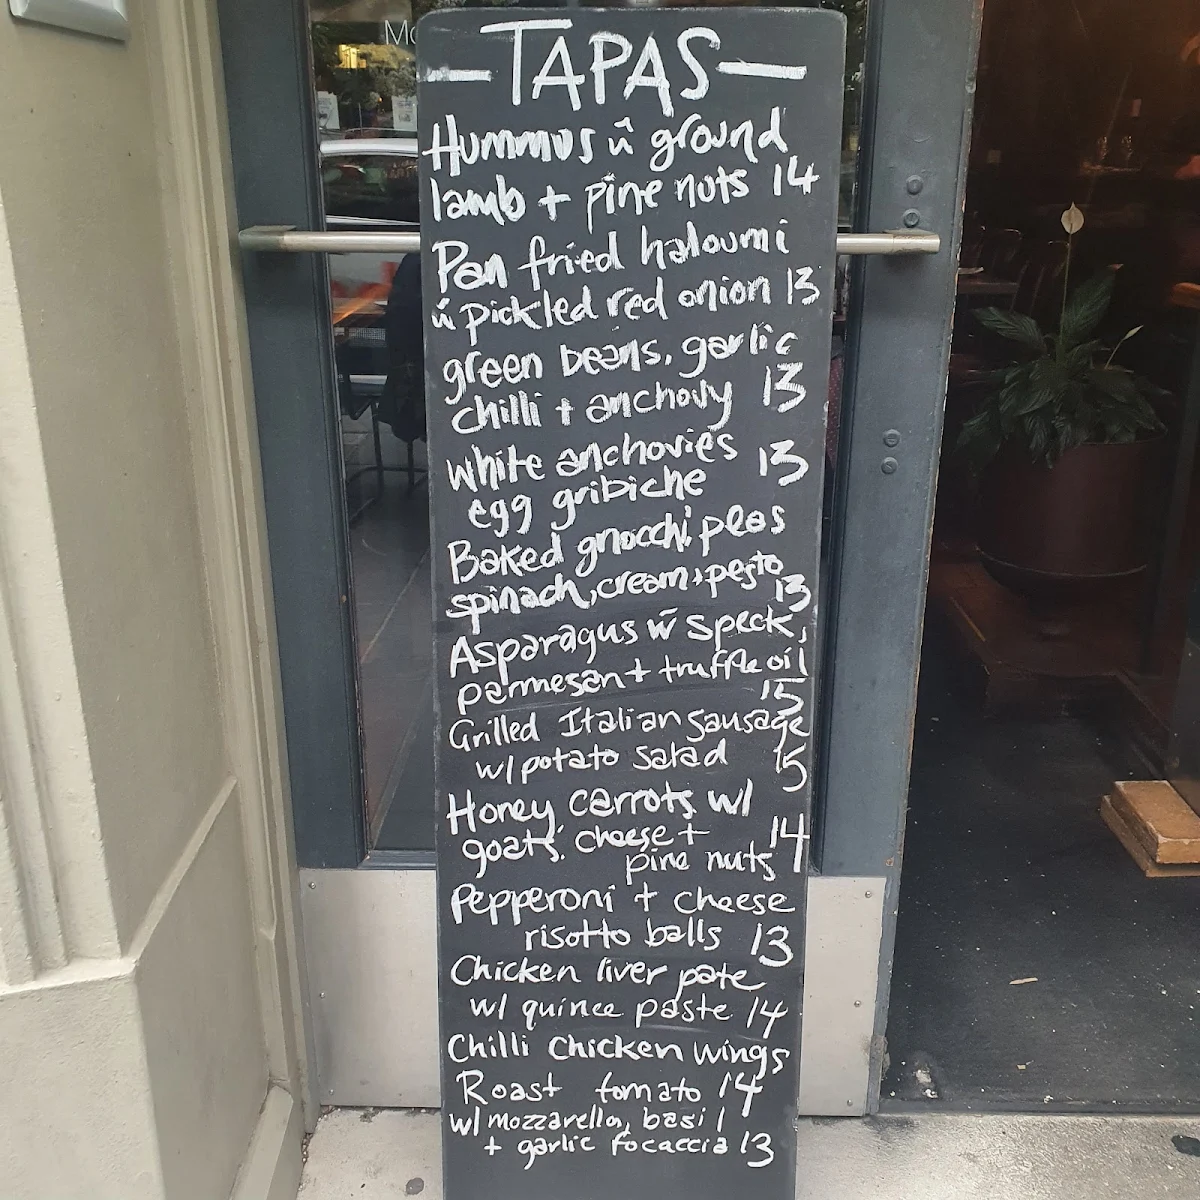 Mo
—TAPAS—
Hummus w̄ ground
lamb + pine nuts 14
Pan fried haloumi
w̄ pickled red onion 13
green beans, garlic
chilli + anchovy 13
White anchovies
egg gribiche 13
Baked gnocchi, peas
spinach, cream + pesto
13
Asparagus w̄ speck,
parmesan + truffle oil
15
Grilled Italian sausage
w/ potato salad 15
Honey carrots w/
goats' cheese + 14
pine nuts
Pepperoni + cheese
risotto balls 13
Chicken liver pate
w/ quince paste 14
Chilli chicken wings
14
Roast tomato
w/ mozzarella, basil
+ garlic focaccia 13